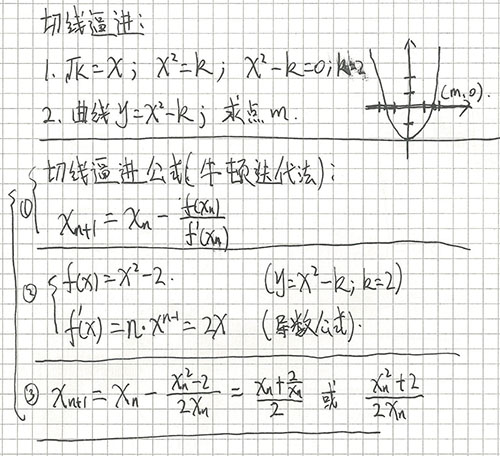 切线逼进:
1. √k=x; x²=k; x²-k=0; k=2
(m,0).
2. 曲线y=x²-k; 求点m.
切线逼进公式(牛顿迭代法):
① xₙ₊₁ = xₙ - f(xₙ)/f'(xₙ)
② f(x)=x²-2. (y=x²-k; k=2)
f'(x)=n·xⁿ⁻¹=2x (导数公式).
③ xₙ₊₁ = xₙ - (xₙ²-2)/(2xₙ) = (xₙ+2/xₙ)/2 或 (xₙ²+2)/(2xₙ)